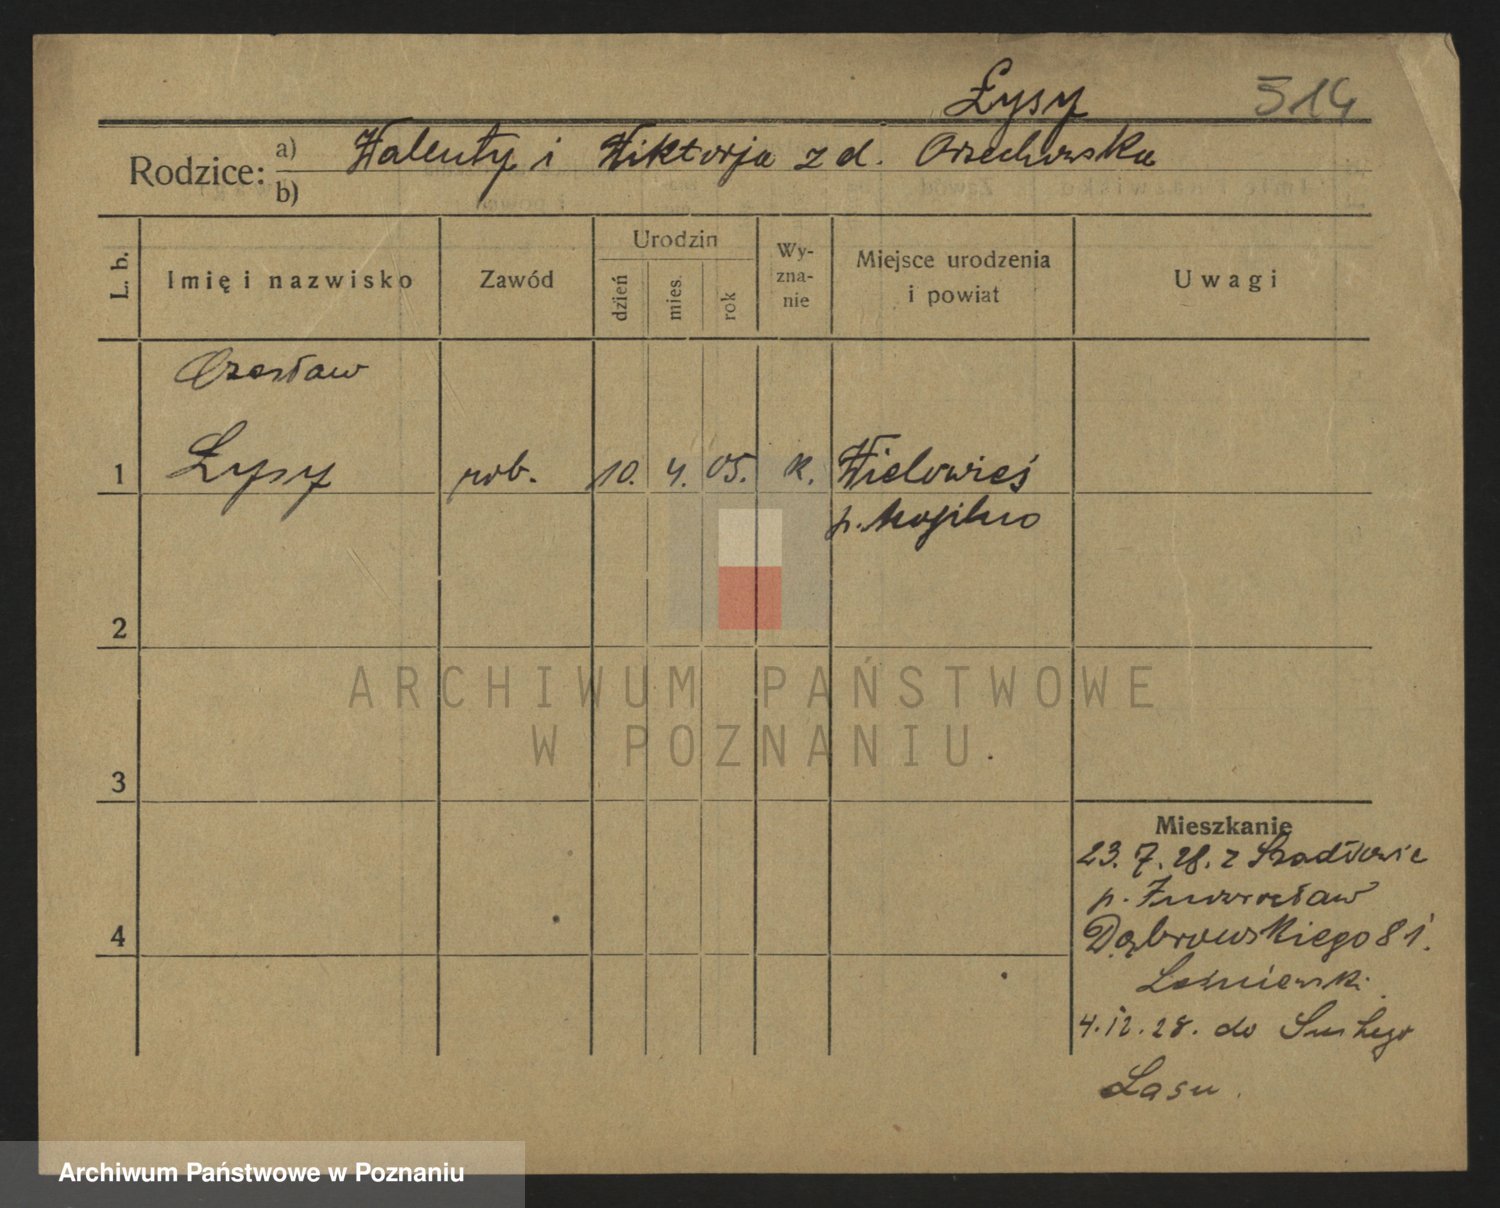 Łysy 514
Rodzice: a) Walenty i Wiktorja z d. Orzechowska
b)
L. b. Imię i nazwisko Zawód Urodzin dzień mies. rok Wy-zna-nie Miejsce urodzenia i powiat Uwagi
Czesław
1 Łysy rob. 10. 4. 05. k. Wielowieś
p. Mogilno
2
ARCHIWUM PAŃSTWOWE
W POZNANIU
3
Mieszkanie
23. 7. 28. z Szadłowic
p. Inowrocław
4 Dąbrowskiego 81.
Leśniewski
4. 12. 28. do Suchego
Lasu.
Archiwum Państwowe w Poznaniu